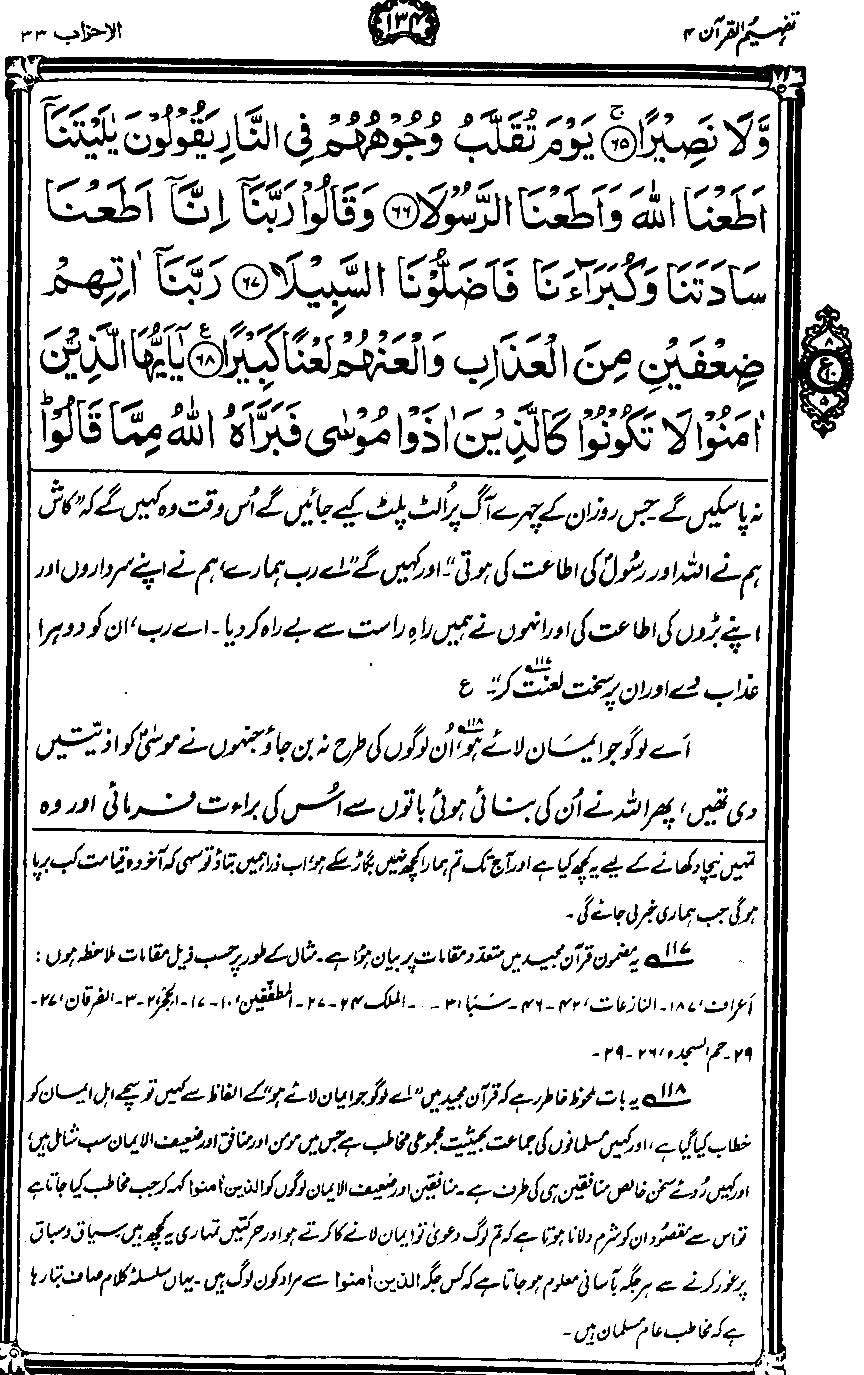 تفہیم القرآن ۴
۱۳۴
الاحزاب ۳۳
وَّلَا نَصِيْرًا ۶۵ۚ يَوْمَ تُقَلَّبُ وُجُوْهُهُمْ فِى النَّارِ يَقُوْلُوْنَ يٰلَيْتَنَاۤ
اَطَعْنَا اللّٰهَ وَاَطَعْنَا الرَّسُوْلَا ۶۶ وَقَالُوْا رَبَّنَاۤ اِنَّاۤ اَطَعْنَا
سَادَتَنَا وَكُبَرَآءَنَا فَاَضَلُّوْنَا السَّبِيْلَا ۶۷ رَبَّنَاۤ اٰتِهِمْ
ضِعْفَيْنِ مِنَ الْعَذَابِ وَالْعَنْهُمْ لَعْنًا كَبِيْرًا ۶۸ع يٰۤاَيُّهَا الَّذِيْنَ
اٰمَنُوْا لَا تَكُوْنُوْا كَالَّذِيْنَ اٰذَوْا مُوْسٰى فَبَرَّاَهُ اللّٰهُ مِمَّا قَالُوْاؕ
۸
ع ۱۰
۵
نہ پا سکیں گے۔ جس روز ان کے چہرے آگ پر اُلٹ پلٹ کیے جائیں گے اُس وقت وہ کہیں گے کہ ”کاش
ہم نے اللہ اور رسولؐ کی اطاعت کی ہوتی“۔ اور کہیں گے ”اے رب ہمارے، ہم نے اپنے سرداروں اور
اپنے بڑوں کی اطاعت کی اور انہوں نے ہمیں راہِ راست سے بے راہ کر دیا۔ اے رب، ان کو دوہرا
عذاب دے اور ان پر سخت لعنت کر“۔ ۱۱۷ ع
اَے لوگو جو ایمان لائے ہو، ۱۱۸ اُن لوگوں کی طرح نہ بن جاؤ جنہوں نے موسیٰؑ کو اذیّتیں
دی تھیں، پھر اللہ نے اُن کی بنائی ہوئی باتوں سے اُس کی براءت فرمائی اور وہ
تمہیں نیچا دکھانے کے لیے یہ کچھ کیا ہے اور آج تک تم ہمارا کچھ نہیں بگاڑ سکے ہو، اب ذرا ہمیں بتاؤ تو سہی کہ آخر وہ قیامت کب برپا
ہو گی جب ہماری خبر لی جائے گی۔
۱۱۷ یہ مضمون قرآن مجید میں متعدد مقامات پر بیان ہوا ہے۔ مثال کے طور پر حسب ذیل مقامات ملاحظہ ہوں:
اَعراف، ۱۸۷۔ النازعات، ۴۲۔ ۴۶۔ سَبَا ۳۱۔ الملک ۲۴۔ ۲۷۔ المطفّفین، ۱۰۔ ۱۷۔ الحجر، ۲۔ ۳۔ الفرقان، ۲۷۔
۲۹۔ حٰم السجدہ، ۲۶۔ ۲۹۔
۱۱۸ یہ بات ملحوظِ خاطر رہے کہ قرآن مجید میں ”اے لوگو جو ایمان لائے ہو“ کے الفاظ سے کہیں تو سچے اہلِ ایمان کو
خطاب کیا گیا ہے، اور کہیں مسلمانوں کی جماعت بحیثیت مجموعی مخاطب ہے جس میں مومن اور منافق اور ضعیف الایمان سب شامل ہیں،
اور کہیں روئے سخن خالص منافقین ہی کی طرف ہے۔ منافقین اور ضعیف الایمان لوگوں کو الذین اٰمنوا کہہ کر جب مخاطب کیا جاتا ہے
تو اس سے مقصود ان کو شرم دلانا ہوتا ہے کہ تم لوگ دعویٰ تو ایمان لانے کا کرتے ہو اور حرکتیں تمہاری یہ کچھ ہیں۔ سیاق و سباق
پر غور کرنے سے ہر جگہ بآسانی معلوم ہو جاتا ہے کہ کس جگہ الذین اٰمنوا سے مراد کون لوگ ہیں۔ یہاں سلسلۂ کلام صاف بتا رہا
ہے کہ مخاطب عام مسلمان ہیں۔